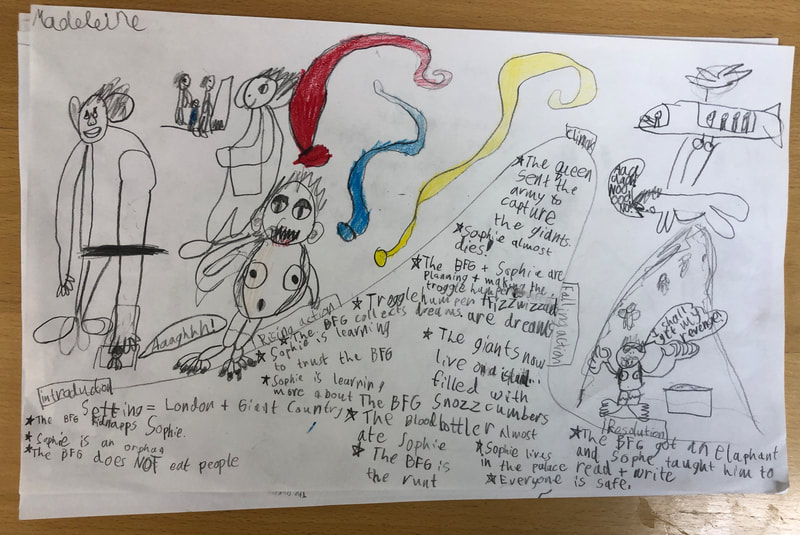 Madeleine
Aaaghhh!
Introduction
Setting = London + Giant Country
★ The BFG kidnapps Sophie.
★ Sophie is an orphan
★ The BFG does NOT eat people
Rising action
★ The BFG collects dreams.
★ Sophie is learning
to trust the BFG
★ Sophie is learning
more about The BFG
★ The Bloodbottler almost
ate Sophie
★ The BFG is
the runt
Climax
★ The queen
sent the
army to
capture
the giants.
★ Sophie almost
dies!
★ The BFG + Sophie are
planning + making the
trogglehumper
★ Trogglehumpen + fizzwizzard
are dreams
Falling action
★ The giants now
live on a
filled with
snozzcumbers
★ Sophie lives
in the palace
★ Everyone is safe.
I shall
get my
revenge!
Resolution
★ The BFG got an elaphant
and Sophe taught him to
read + write